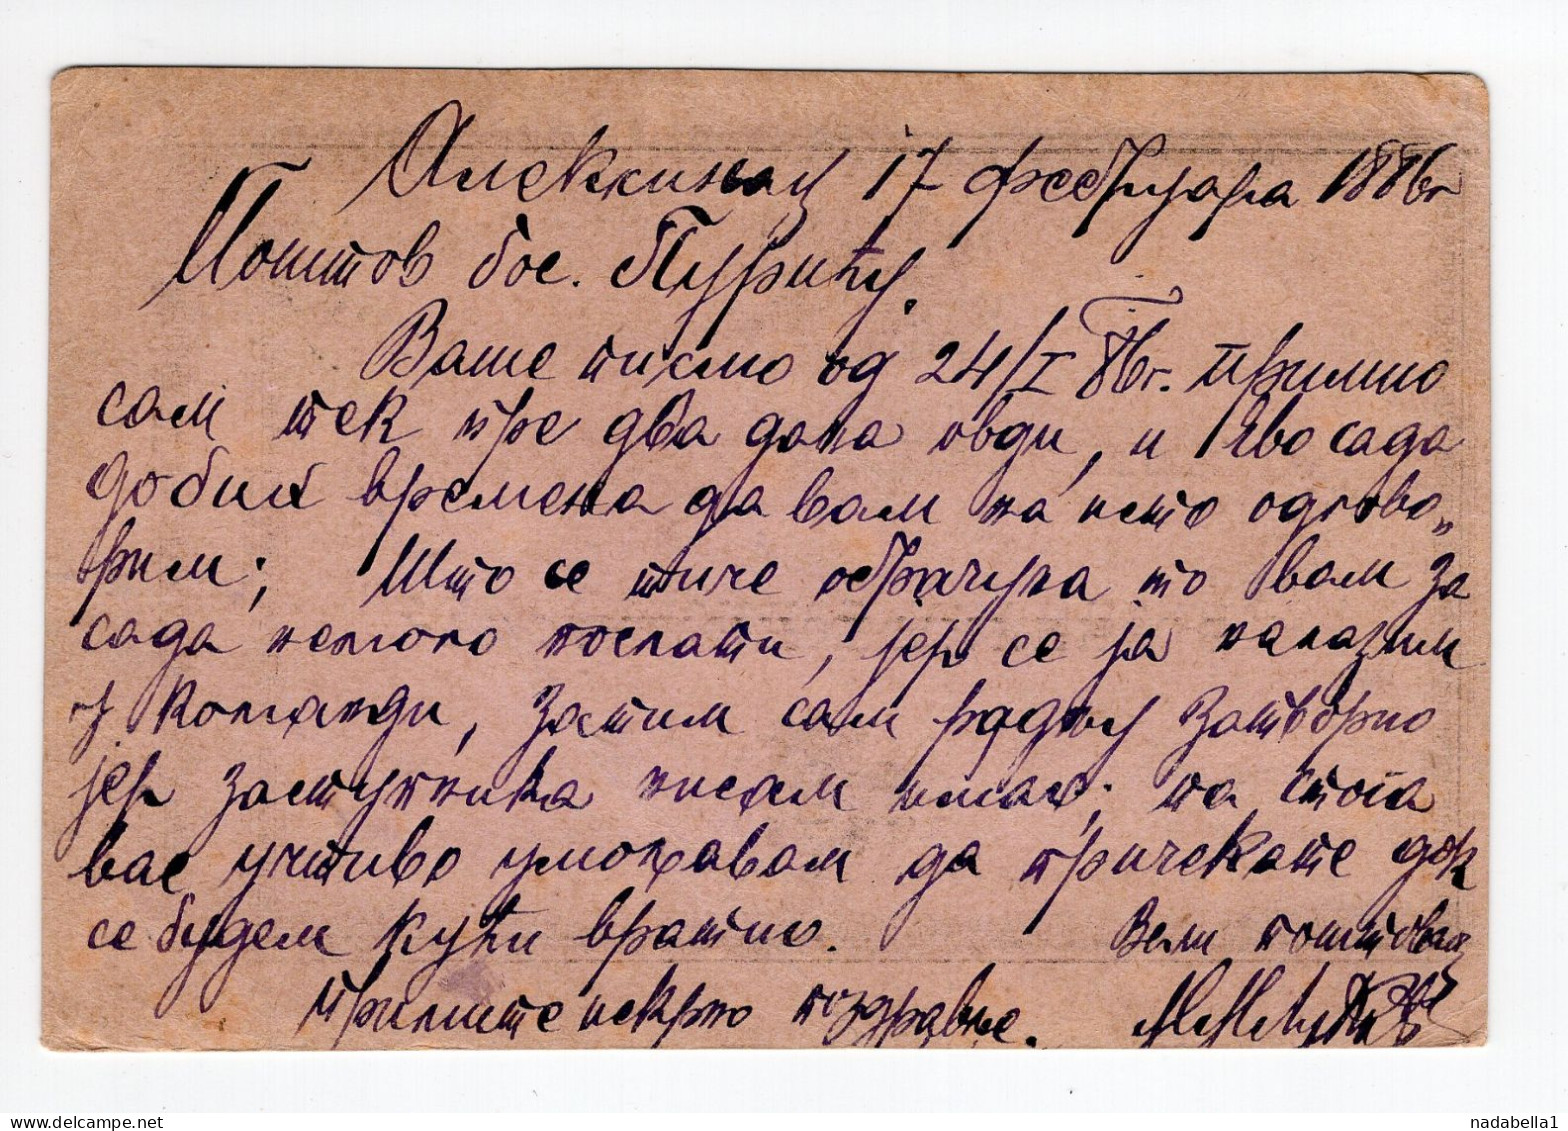 Алексинац 17 фебруара 1886 г
Поштов. гос. Пурићу.
Ваше писмо од 24/I 86 г. примио
сам тек пре два дана овди, и Ево сада
добих времена да вам на исто одгово„
рим; Што се тиче обрачуна то вам за
сада немого послати, јер се ја налазим
у команди, затим сам радњу затворио
јер заступника нисам имао; па стога
вас учтиво умољавам да причекате док
се будем кући вратио. Вели поштовац
Примите искрно поздравље.
nadabella1